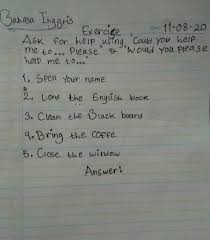 Bahasa Inggris
Exercise 11-08-20
Ask for help using, "Could you help
me to... Please" & "Would you please
help me to..."
1. Spell your name
2. Lend the English book
3. Clean the Black board
4. Bring the coffee
5. Close the window
Answer: